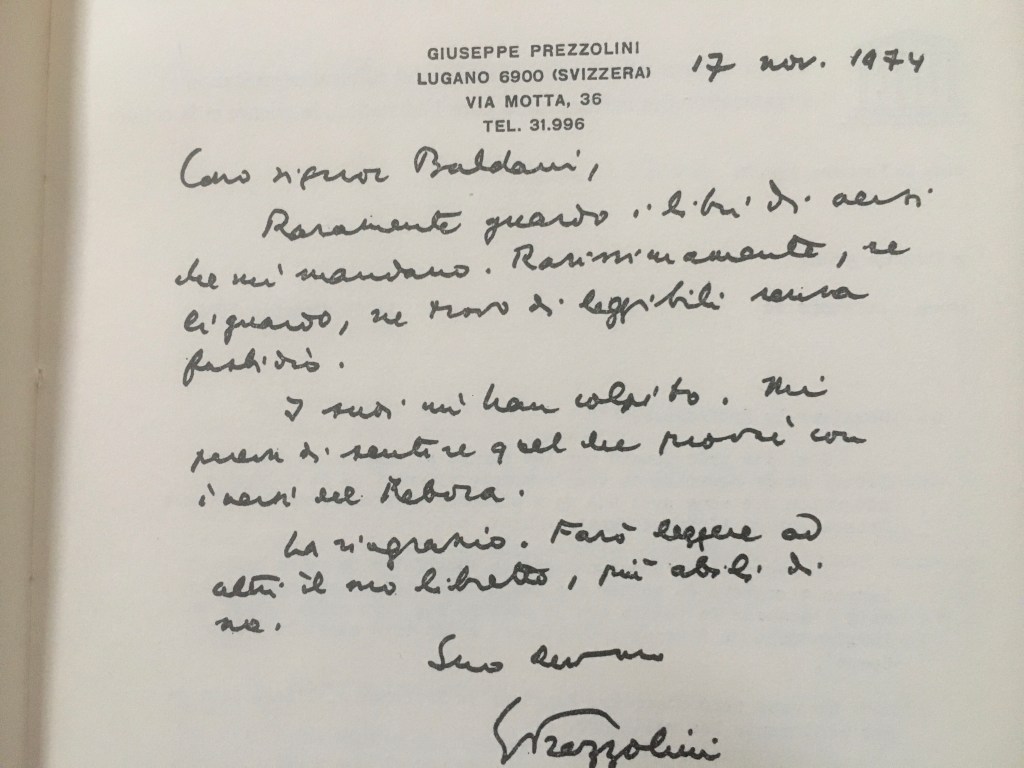 GIUSEPPE PREZZOLINI
LUGANO 6900 (SVIZZERA)
VIA MOTTA, 36
TEL. 31.996
17 nov. 1974
Caro signor Baldani,
Raramente guardo i libri di versi
che mi mandano. Rarissimamente, se
li guardo, ne trovo di leggibili senza
fastidio.
I suoi mi han colpito. Mi
parve di sentire quel che provai con
i versi del Rebora.
La ringrazio. Farò leggere ad
altri il suo libretto, più abili di
me.
Suo
GPrezzolini